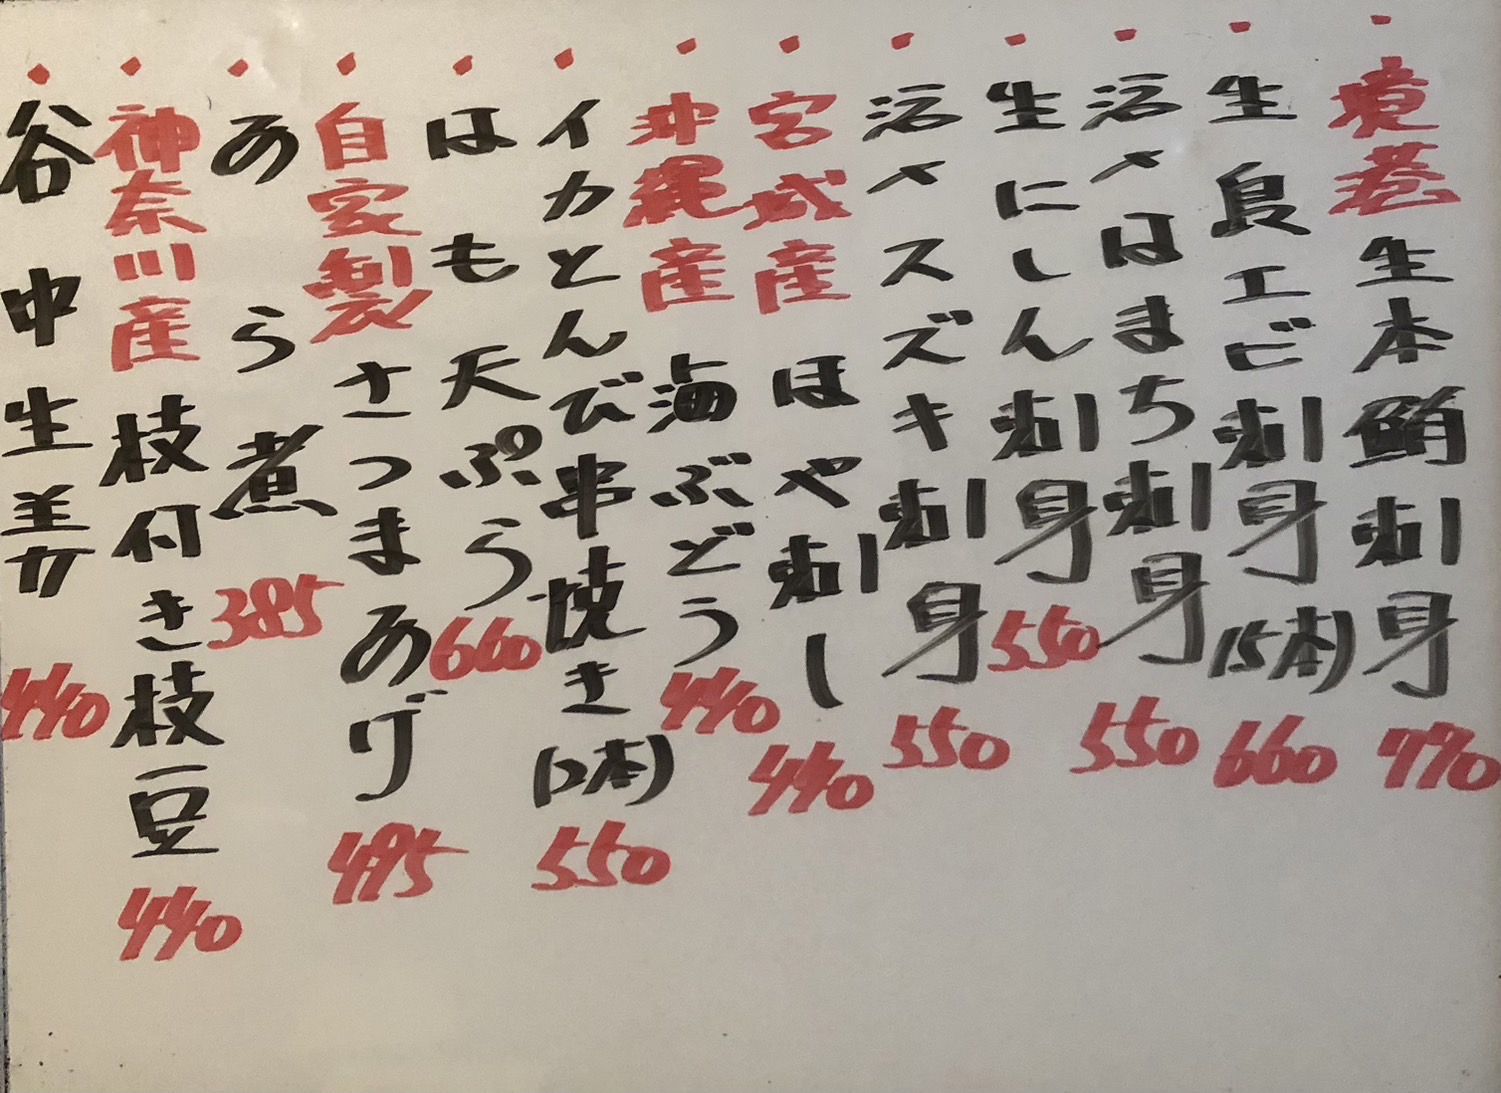 ・境港生本鮪刺身 770
・生島エビ刺身(5本) 660
・活〆はまち刺身 550
・生にしん刺身 550
・活〆スズキ刺身 550
・宮城産ほや刺し 440
・沖縄産海ぶどう 440
・イカとんび串焼き(2本) 550
・はも天ぷら 660
・自家製さつまあげ 495
・あら煮 385
・神奈川産枝付き枝豆 440
・谷中生姜 440